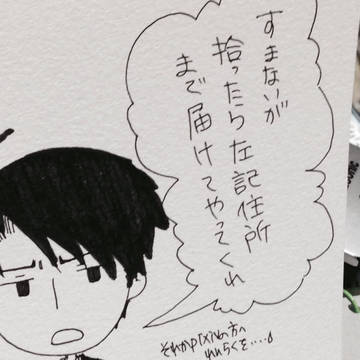 すまないが
拾ったら左記住所
まで届けてやってくれ
それかpixivの方へ
れんらくを....